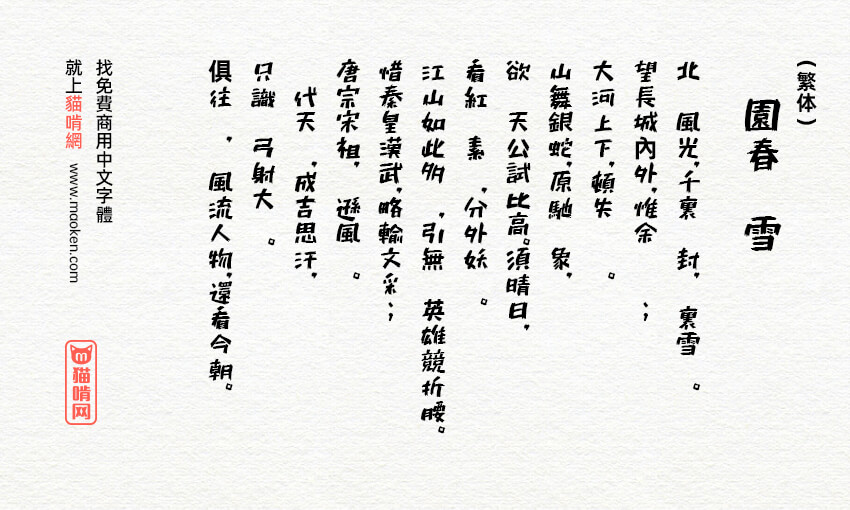 (繁体)
園春 雪
北 風光,千裏 封, 裏雪 。
望長城內外,惟余 ；
大河上下,頓失 。
山舞銀蛇,原馳 象,
欲 天公試比高。須晴日,
看紅 素 ,分外妖 。
江山如此多 ,引無 英雄競折腰。
惜秦皇漢武,略輸文采；
唐宗宋祖, 遜風 。
代天 ,成吉思汗,
只識 弓射大 。
俱往 , 風流人物,還看今朝。
找免費商用中文字體
就上貓啃網 www.maoken.com
貓啃网